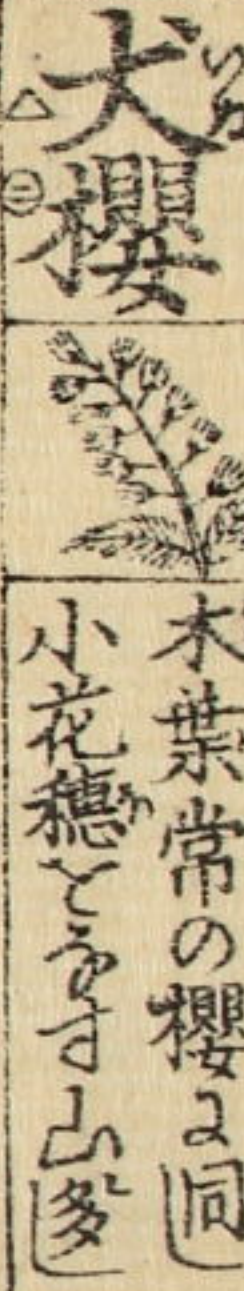 犬櫻
いぬ
△
㊂
木葉常の櫻に同し
小花穂をなす山に多し